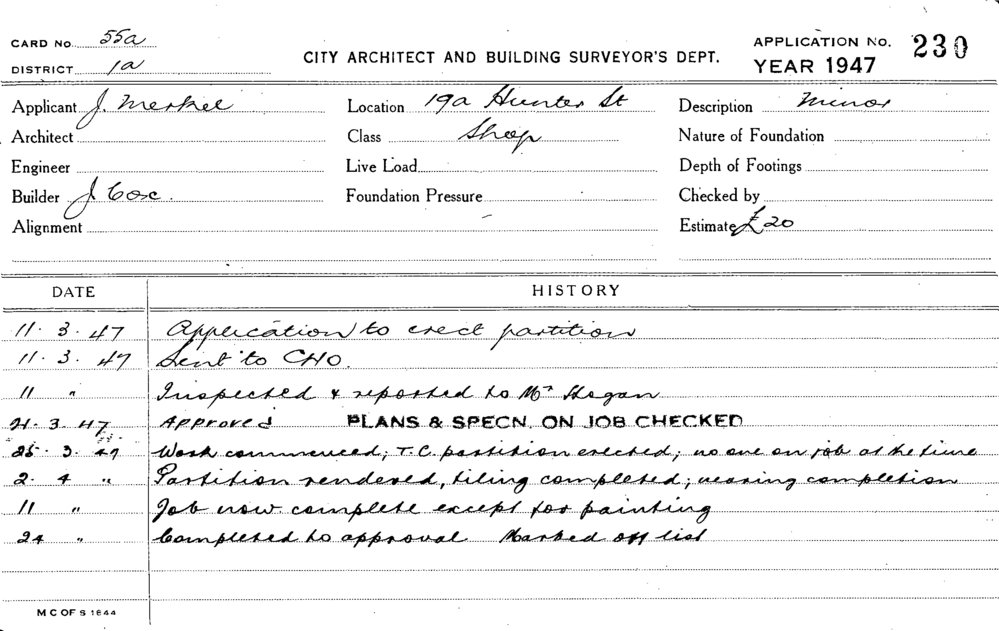 CARD No. 55a
DISTRICT 1a
CITY ARCHITECT AND BUILDING SURVEYOR'S DEPT.
APPLICATION No. 230
YEAR 1947
Applicant J. Merkel Location 19a Hunter St Description Minor
Architect Class Shop Nature of Foundation
Engineer Live Load Depth of Footings
Builder J Cox. Foundation Pressure Checked by
Alignment Estimate £20
DATE HISTORY
11. 3. 47 Application to erect partition
11. 3. 47 Sent to CHO.
11 " Inspected & reported to Mr Hogan
21. 3. 47 Approved PLANS & SPECN. ON JOB CHECKED
25. 3. 47 Work commenced; T.C. partition erected; no one on job at the time
2. 4 " Partition rendered, tiling completed; nearing completion
11 " Job now complete except for painting
24 " Completed to approval Marked off list
M C OF S 1644